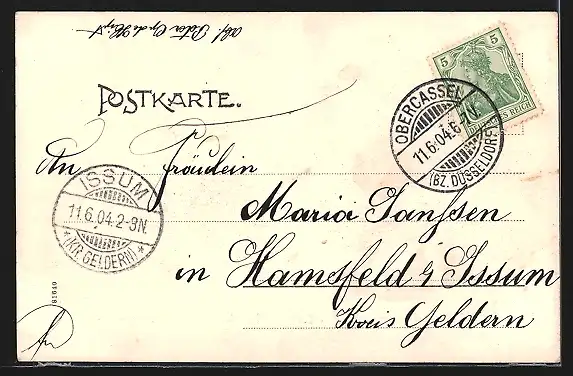 POSTKARTE.
An Fräulein
Maria Janssen
in Hamsfeld b/ Issum
Kreis Geldern
5 5
DEUTSCHES REICH
OBERCASSEL
11.6.04.6-7N.
(BZ. DÜSSELDORF)
ISSUM
11.6.04.2-3N.
*(KR. GELDERN)*
81649